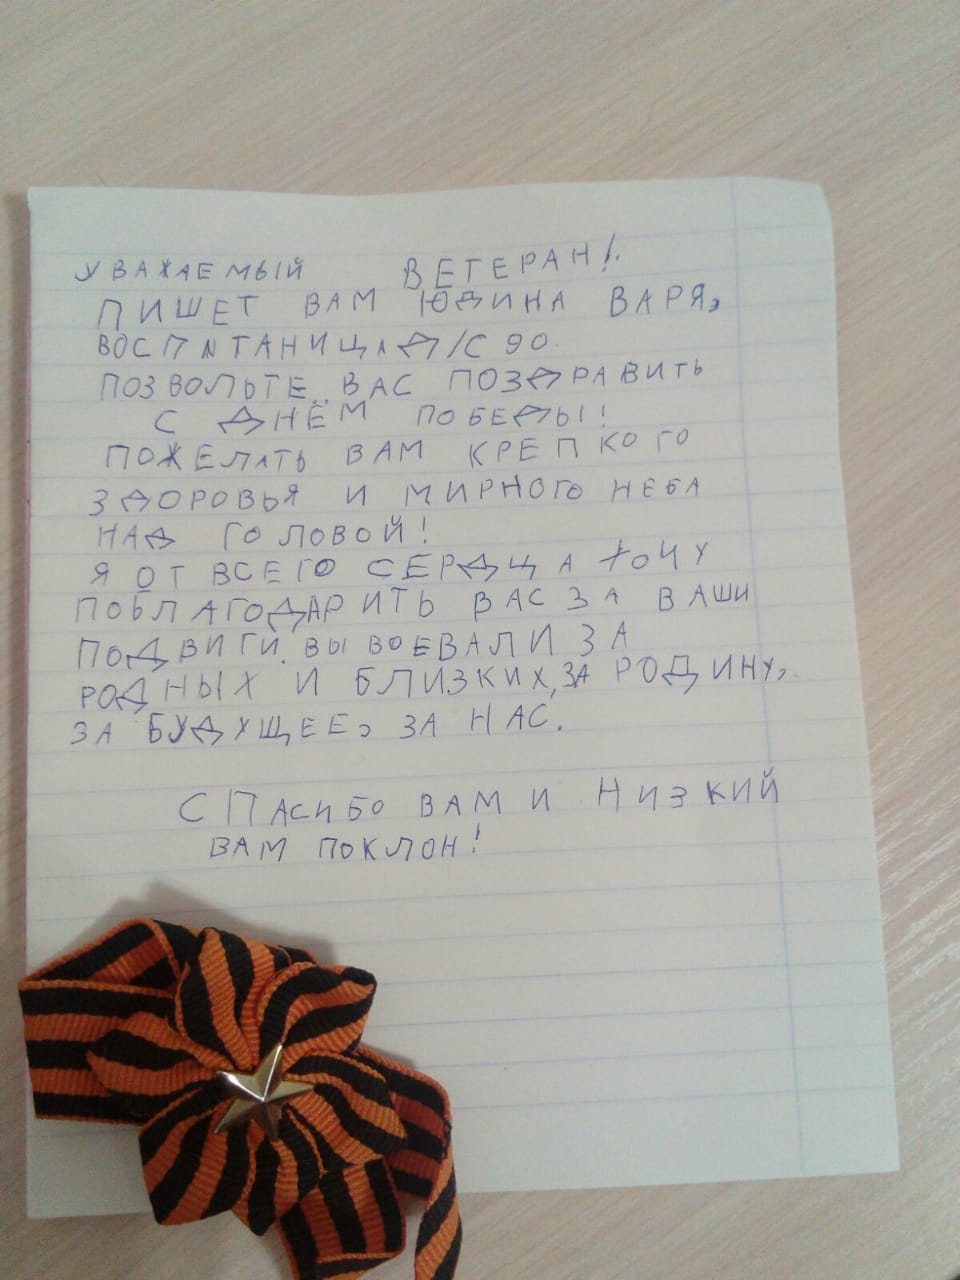 УВАЖАЕМЫЙ ВЕТЕРАН!
ПИШЕТ ВАМ ЮДИНА ВАРЯ,
ВОСПИТАНИЦА Д/С 90.
ПОЗВОЛЬТЕ ВАС ПОЗДРАВИТЬ
С ДНЁМ ПОБЕДЫ!
ПОЖЕЛАТЬ ВАМ КРЕПКОГО
ЗДОРОВЬЯ И МИРНОГО НЕБА
НАД ГОЛОВОЙ!
Я ОТ ВСЕГО СЕРДЦА ХОЧУ
ПОБЛАГОДАРИТЬ ВАС ЗА ВАШИ
ПОДВИГИ. ВЫ ВОЕВАЛИ ЗА
РОДНЫХ И БЛИЗКИХ, ЗА РОДИНУ,
ЗА БУДУЩЕЕ, ЗА НАС.
СПАСИБО ВАМ И НИЗКИЙ
ВАМ ПОКЛОН!